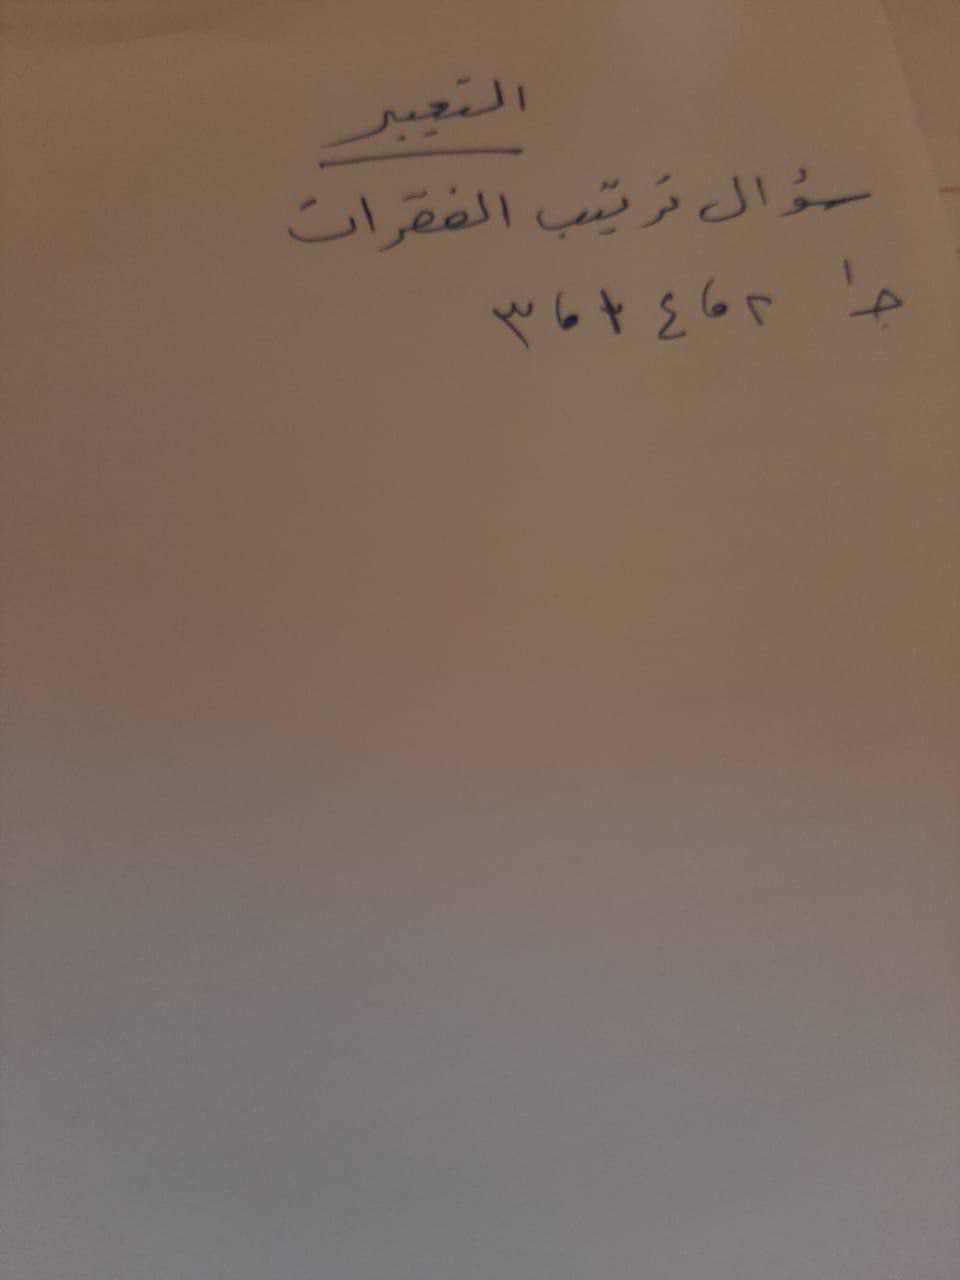 التعبير
سؤال ترتيب الفقرات
جـ١ ٢ ، ٤ ، ١ ، ٣